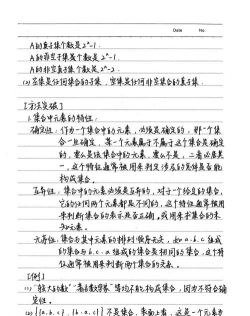 Date No.
A的真子集个数是2ⁿ-1.
A的非空子集个数是2ⁿ-1.
A的非空真子集个数是2ⁿ-2.
(2)空集是任何集合的子集,空集是任何非空集合的真子集.
【方法突破】
1.集合中元素的特征:
确定性:作为一个集合中的元素,必须是确定的,即一个集
合一旦确定,某一个元素属于不属于这个集合是确定
的,要么是该集合中的元素,要么不是,二者必居其
一,这个特征通常被用来判定涉及的总体是否能
构成集合.
互异性:集合中的元素必须是互异的,对于一个给定的集合,
它的任何两个元素都是不同的,这个特征通常被用
来判断集合的表示是否正确,或用来求集合的未
知元素.
无序性:集合与其中元素的排列顺序无关,如a.b.c组成
的集合与b.c.a组成的集合是相同的集合,这个特
征通常被用来判断两个集合的关系.
【例】
(1)“较大的数”“著名科学家”等均不能构成集合,因为不符合确
定性.
(2){(a.b.c),(b.a.c)}不是集合,表面上看,这是一个元素为